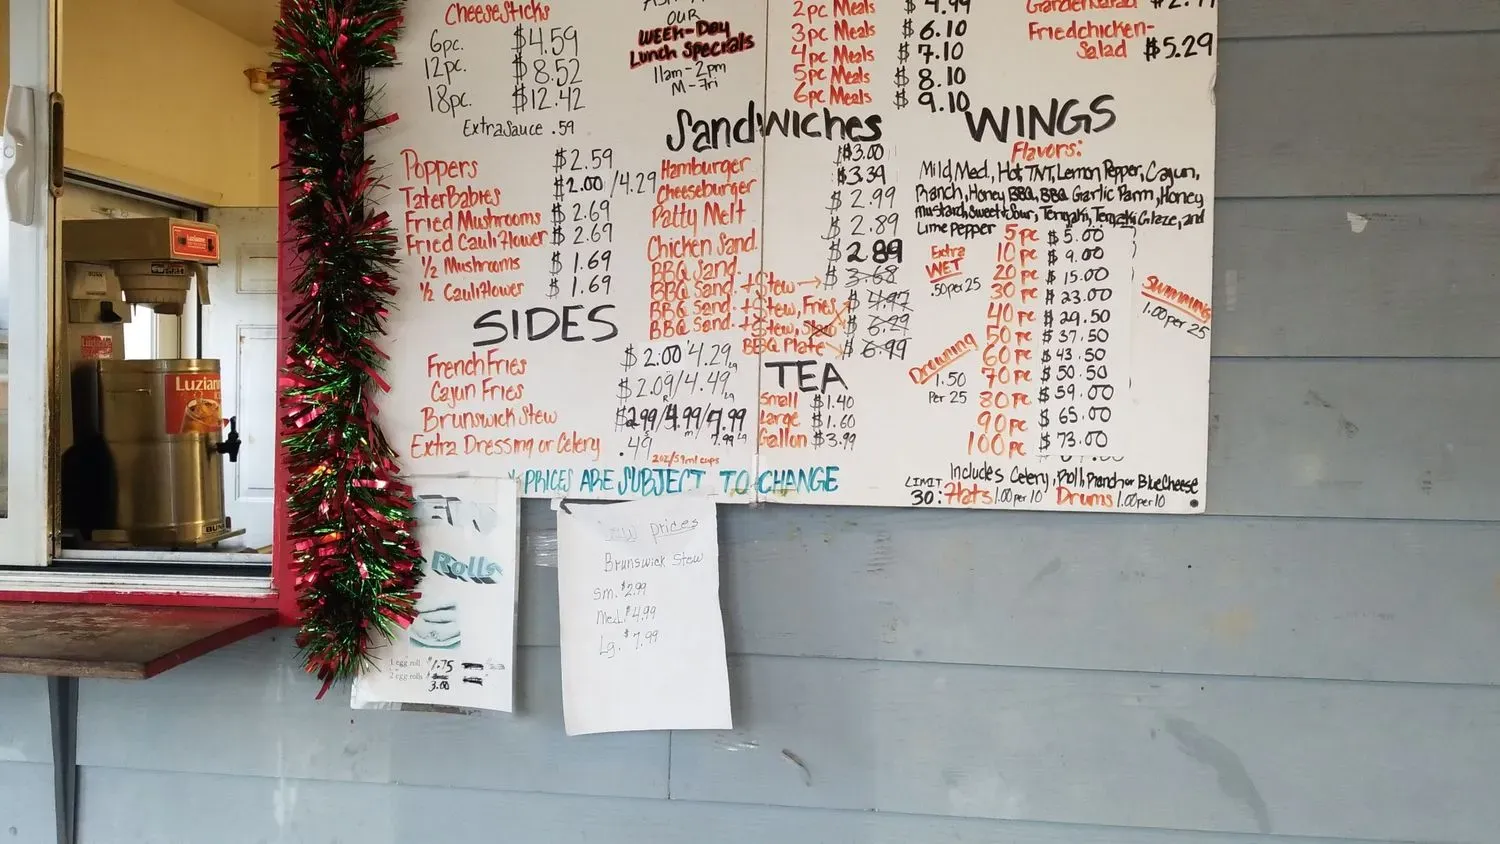 CheeseSticks
6pc. $4.59
12pc. $8.52
18pc. $12.42
Extra Sauce .59
Poppers $2.59
TaterBabies $2.00/4.29
Fried Mushrooms $2.69
Fried Cauliflower $2.69
1/2 Mushrooms $1.69
1/2 Cauliflower $1.69
SIDES
French Fries $2.00/4.29 Lg
Cajun Fries $2.09/4.49 Lg
Brunswick Stew $2.99/4.99/7.99
Extra Dressing or Celery .49
2oz/59ml cups
PRICES ARE SUBJECT TO CHANGE
OUR
WEEK-DAY
Lunch Specials
11am-2pm
M-Fri
2pc Meals $4.99
3pc Meals $6.10
4pc Meals $7.10
5pc Meals $8.10
6pc Meals $9.10
Garden Salad
Fried chicken-
Salad $5.29
Sandwiches
Hamburger $3.00
Cheeseburger $3.39
Patty Melt $2.99
Chicken Sand. $2.89
BBQ Sand. $2.89
BBQ Sand. + Stew $3.68
BBQ Sand. + Stew, Fries $4.97
BBQ Sand. + Stew, Slaw $6.29
BBQ Plate $6.99
TEA
Small $1.40
Large $1.60
Gallon $3.99
WINGS
Flavors:
Mild, Med, Hot, TNT, Lemon Pepper, Cajun,
Ranch, Honey BBQ, BBQ, Garlic Parm, Honey
Mustard, Sweet+Sour, Teriyaki, Teriyaki Glaze, and
Lime Pepper
5pc $5.00
10pc $9.00
20pc $15.00
30pc $23.00
40pc $29.50
50pc $37.50
60pc $43.50
70pc $50.50
80pc $59.00
90pc $65.00
100pc $73.00
Extra
WET
.50 per 25
Drowning
1.50
Per 25
Swimming
1.00 per 25
Includes Celery, Roll, Ranch or Blue Cheese
LIMIT
30: Flats 1.00 per 10 Drums 1.00 per 10
Luzianne
Luzianne
BUNN
Rolls
1 egg roll $1.75
2 egg rolls 3.00
New prices
Brunswick Stew
Sm. $2.99
Med. $4.99
Lg. $7.99